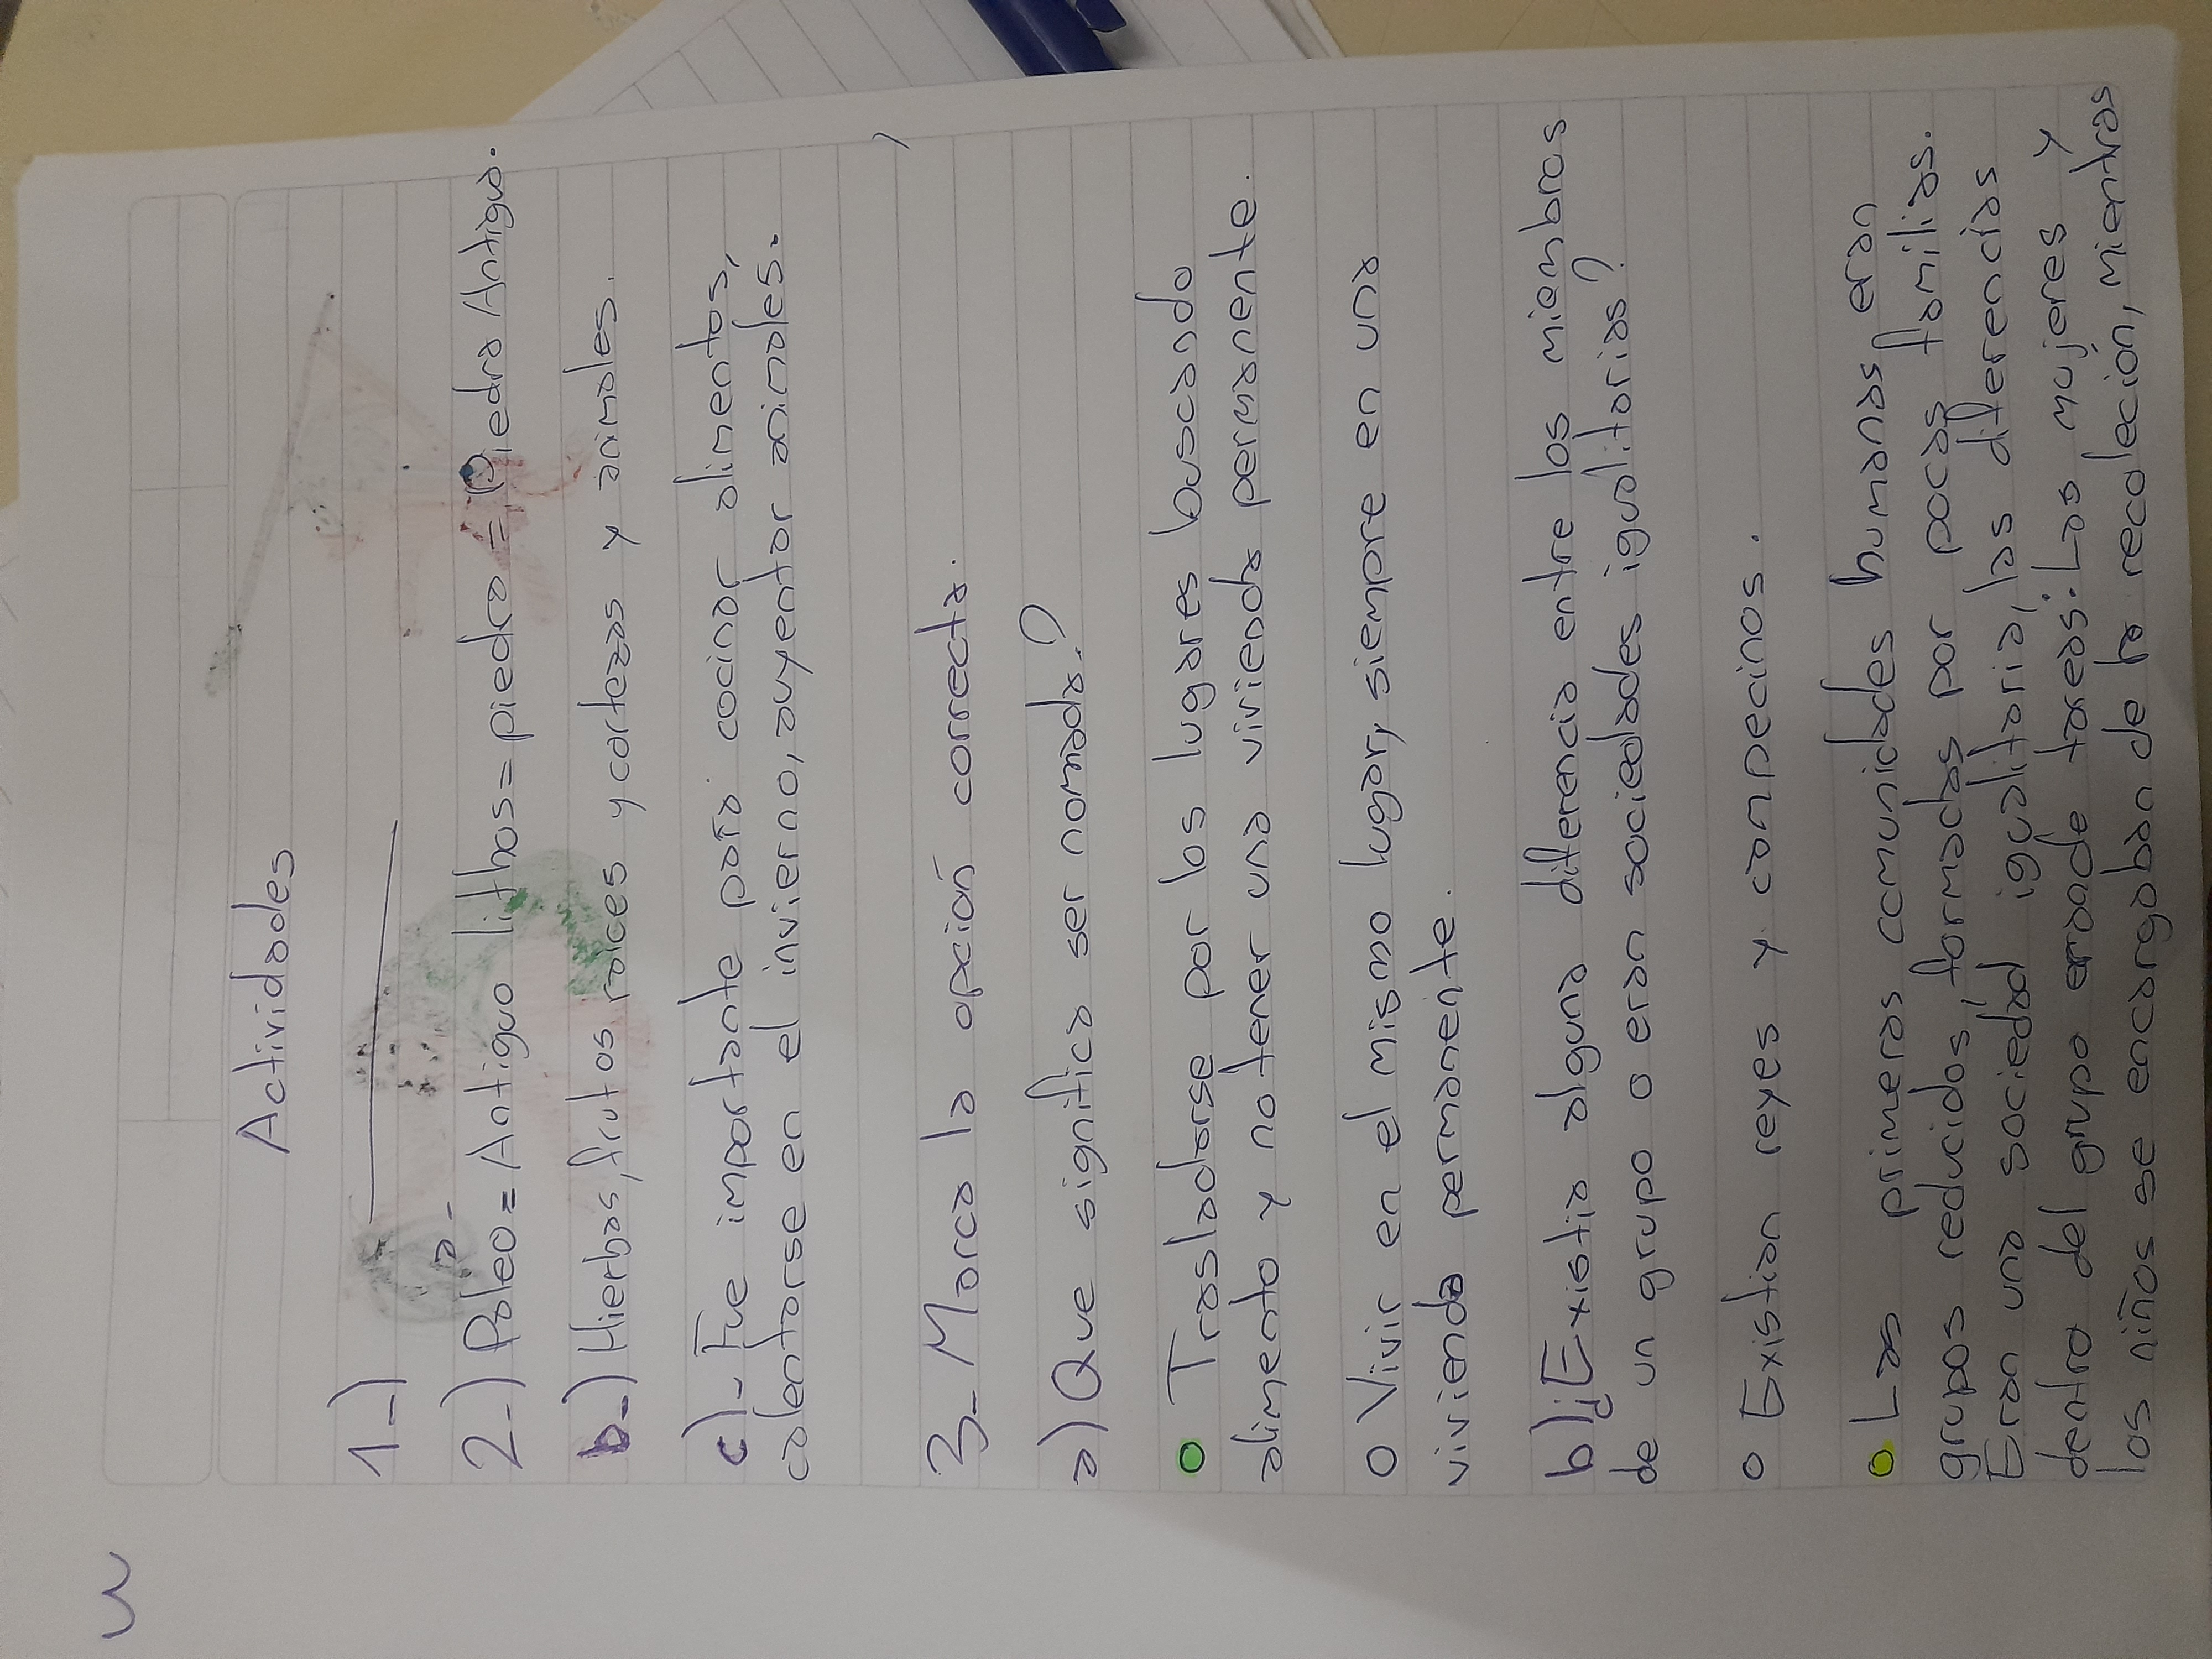 3
Actividades
1-)
a-
2-) Paleo = Antiguo lithos = piedra = Piedra Antigua.
b-) Hierbas, frutos raices y cortezas y animales.
c)- Fue importante para cocinar alimentos,
calentarse en el invierno, auyentar animales.
3- Marca la opción correcta.
a) Que significa ser nomada?
o Trasladarse por los lugares buscando
alimento y no tener una vivienda permanente.
o Vivir en el mismo lugar, siempre en una
vivienda permanente.
b) ¿Existia alguna diferencia entre los miembros
de un grupo o eran sociedades igualitarias?
o Existian reyes y campecinos.
o Las primeras comunidades humanas eran
grupos reducidos, formadas por pocas familias.
Eran una sociedad igualitaria, las diferencias
dentro del grupo era de tareas: Las mujeres y
los niños se encargaban de la recoleción, mientras